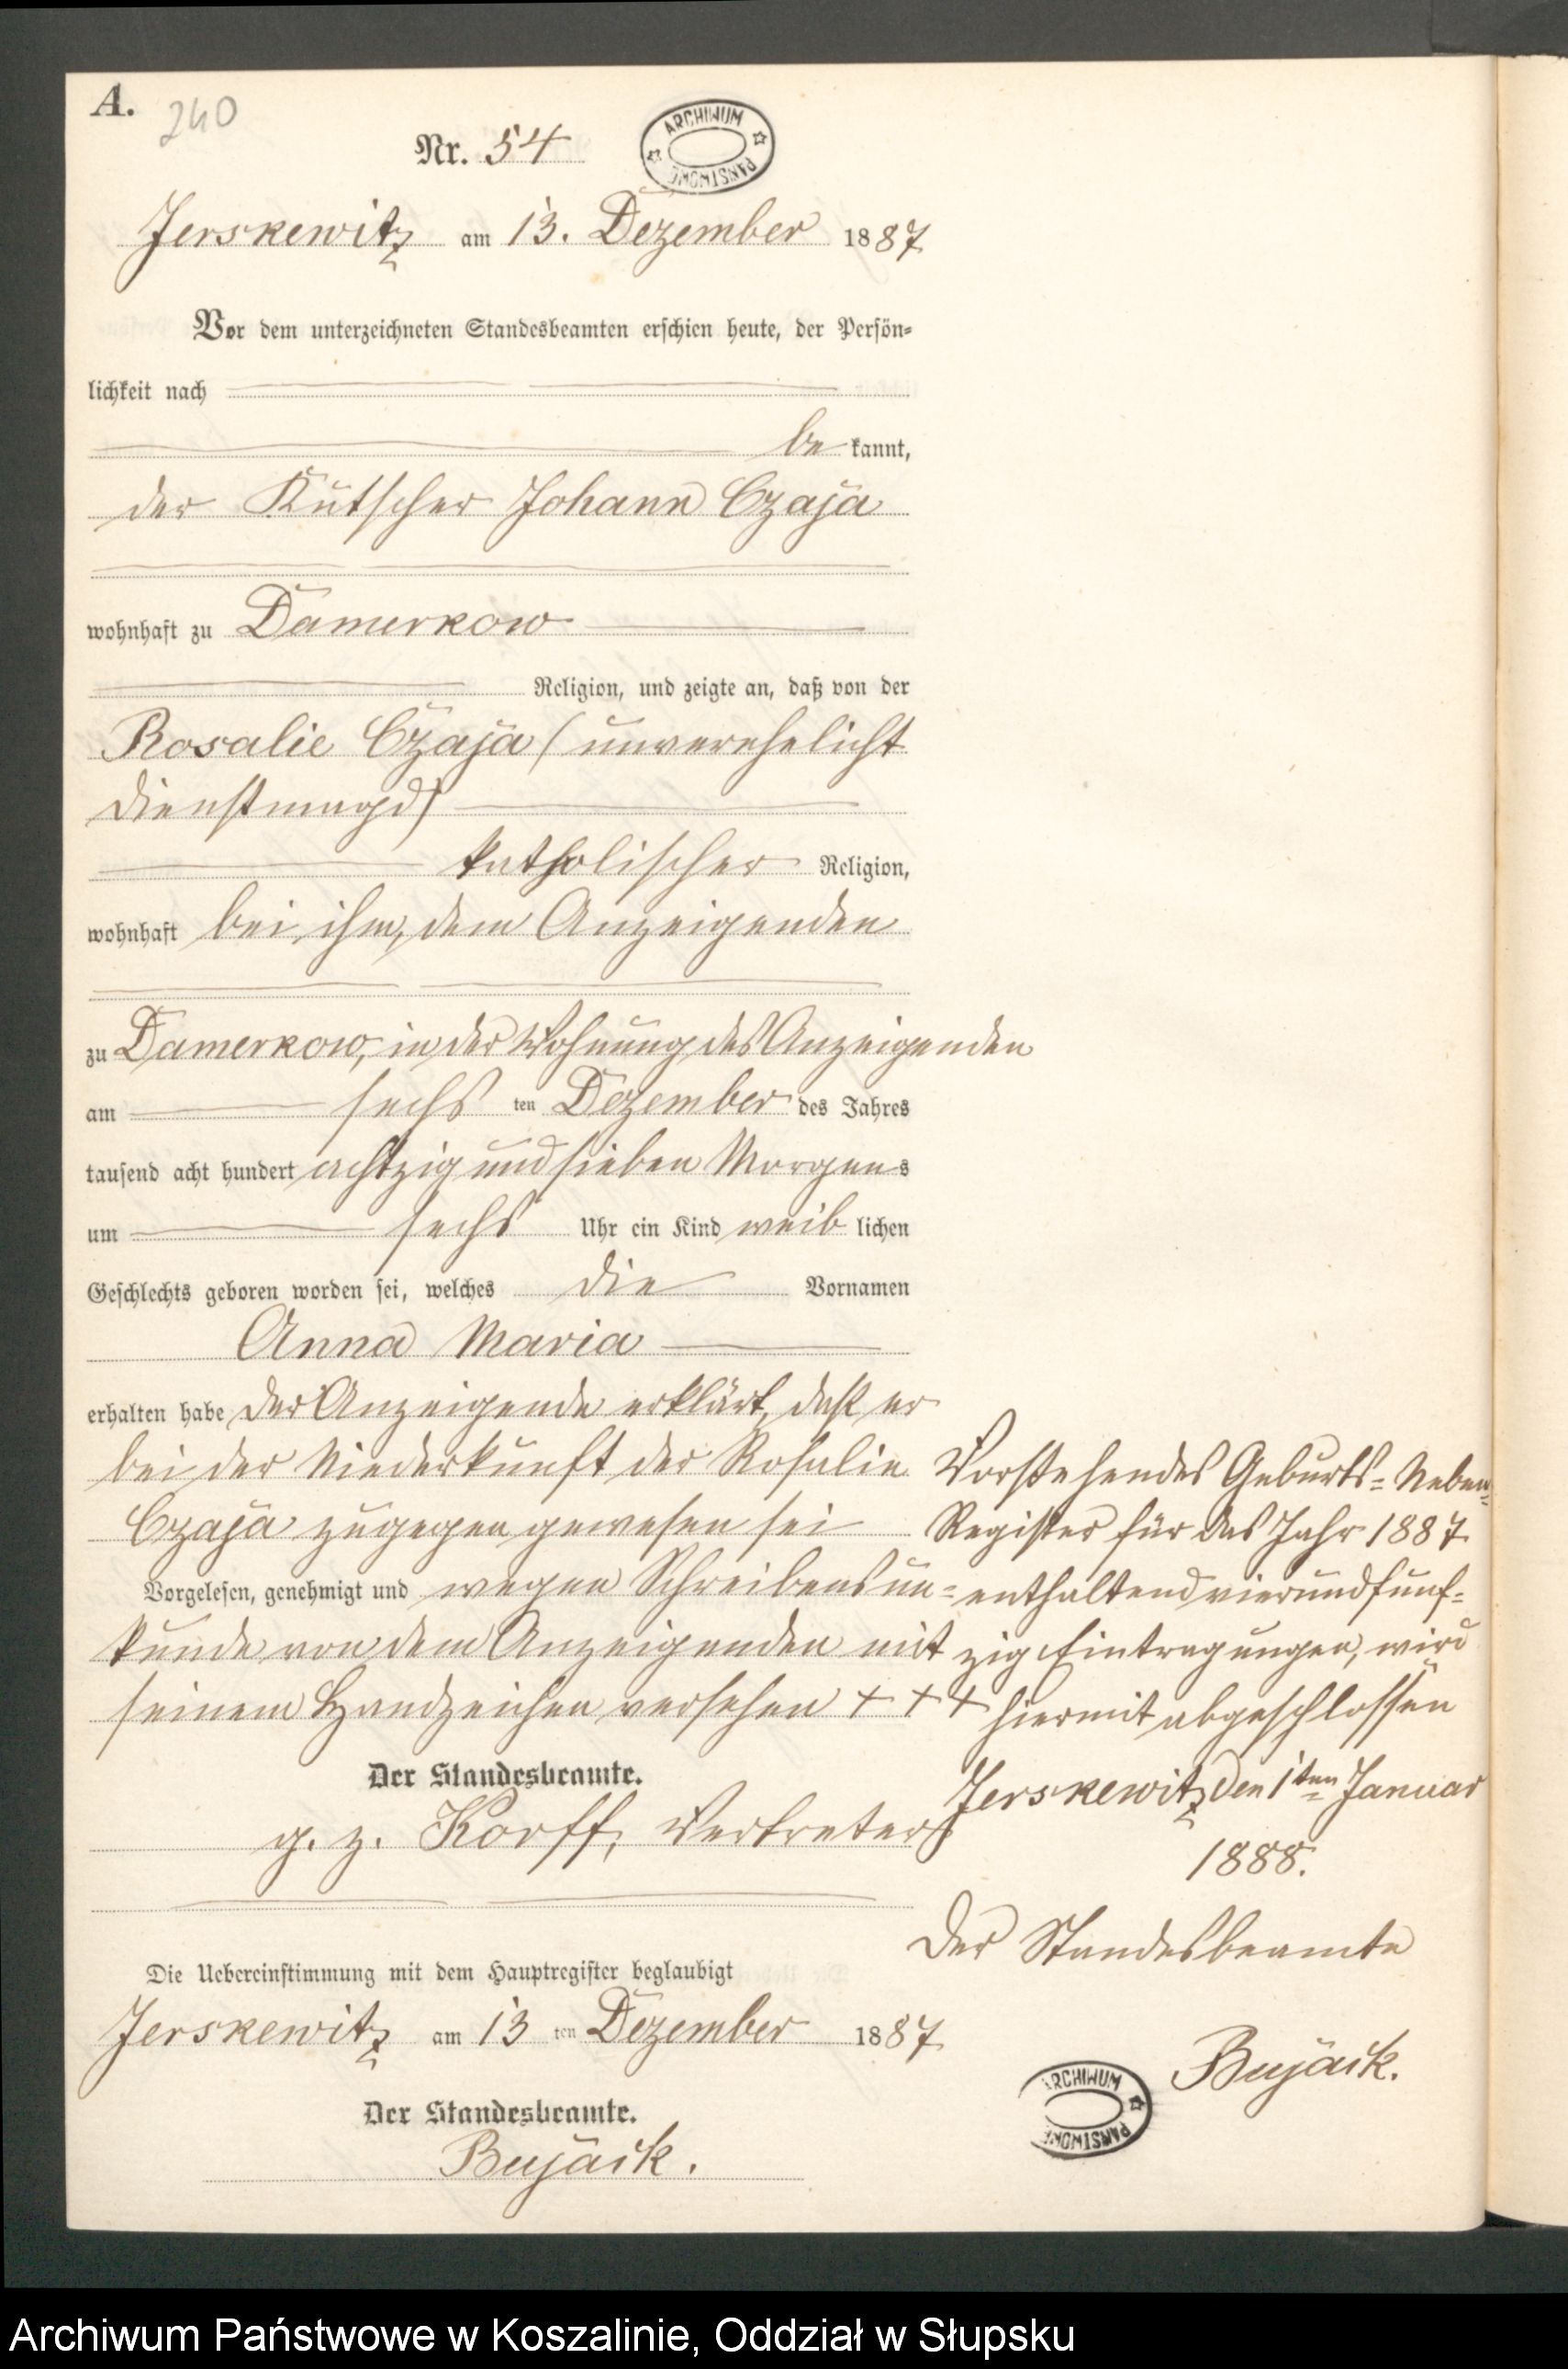 A.
240
Nr. 54
ARCHIWUM PAŃSTWOWE
Jerskewitz am 13. Dezember 1887
Vor dem unterzeichneten Standesbeamten erschien heute, der Persön-
lichkeit nach
be kannt,
der Kutscher Johann Czaja
wohnhaft zu Damerkow
Religion, und zeigte an, daß von der
Rosalie Czaja (unverehelicht
Dienstmagd)
katholischer Religion,
wohnhaft bei ihm, dem Anzeigenden
zu Damerkow, in der Wohnung des Anzeigenden
am sechs ten Dezember des Jahres
tausend acht hundert achtzig und sieben Morgens
um sechs Uhr ein Kind weib lichen
Geschlechts geboren worden sei, welches die Vornamen
Anna Maria
erhalten habe Der Anzeigende erklärt, daß er
bei der Niederkunft der Rosalie
Czaja zugegen gewesen sei
Vorgelesen, genehmigt und wegen Schreibensun-
kunde von dem Anzeigenden mit
seinem Handzeichen versehen + + +
Der Standesbeamte.
g. z. Korff, Vertreter
Die Uebereinstimmung mit dem Hauptregister beglaubigt
Jerskewitz am 13 ten Dezember 1887
Der Standesbeamte.
Bujack.
Vorstehendes Geburts-Neben-
Register für das Jahr 1887
enthaltend vierundfünf-
zig Eintragungen, wird
hiermit abgeschlossen
Jerskewitz den 1ten Januar
1888.
Der Standesbeamte
Bujack.
ARCHIWUM PAŃSTWOWE
Archiwum Państwowe w Koszalinie, Oddział w Słupsku